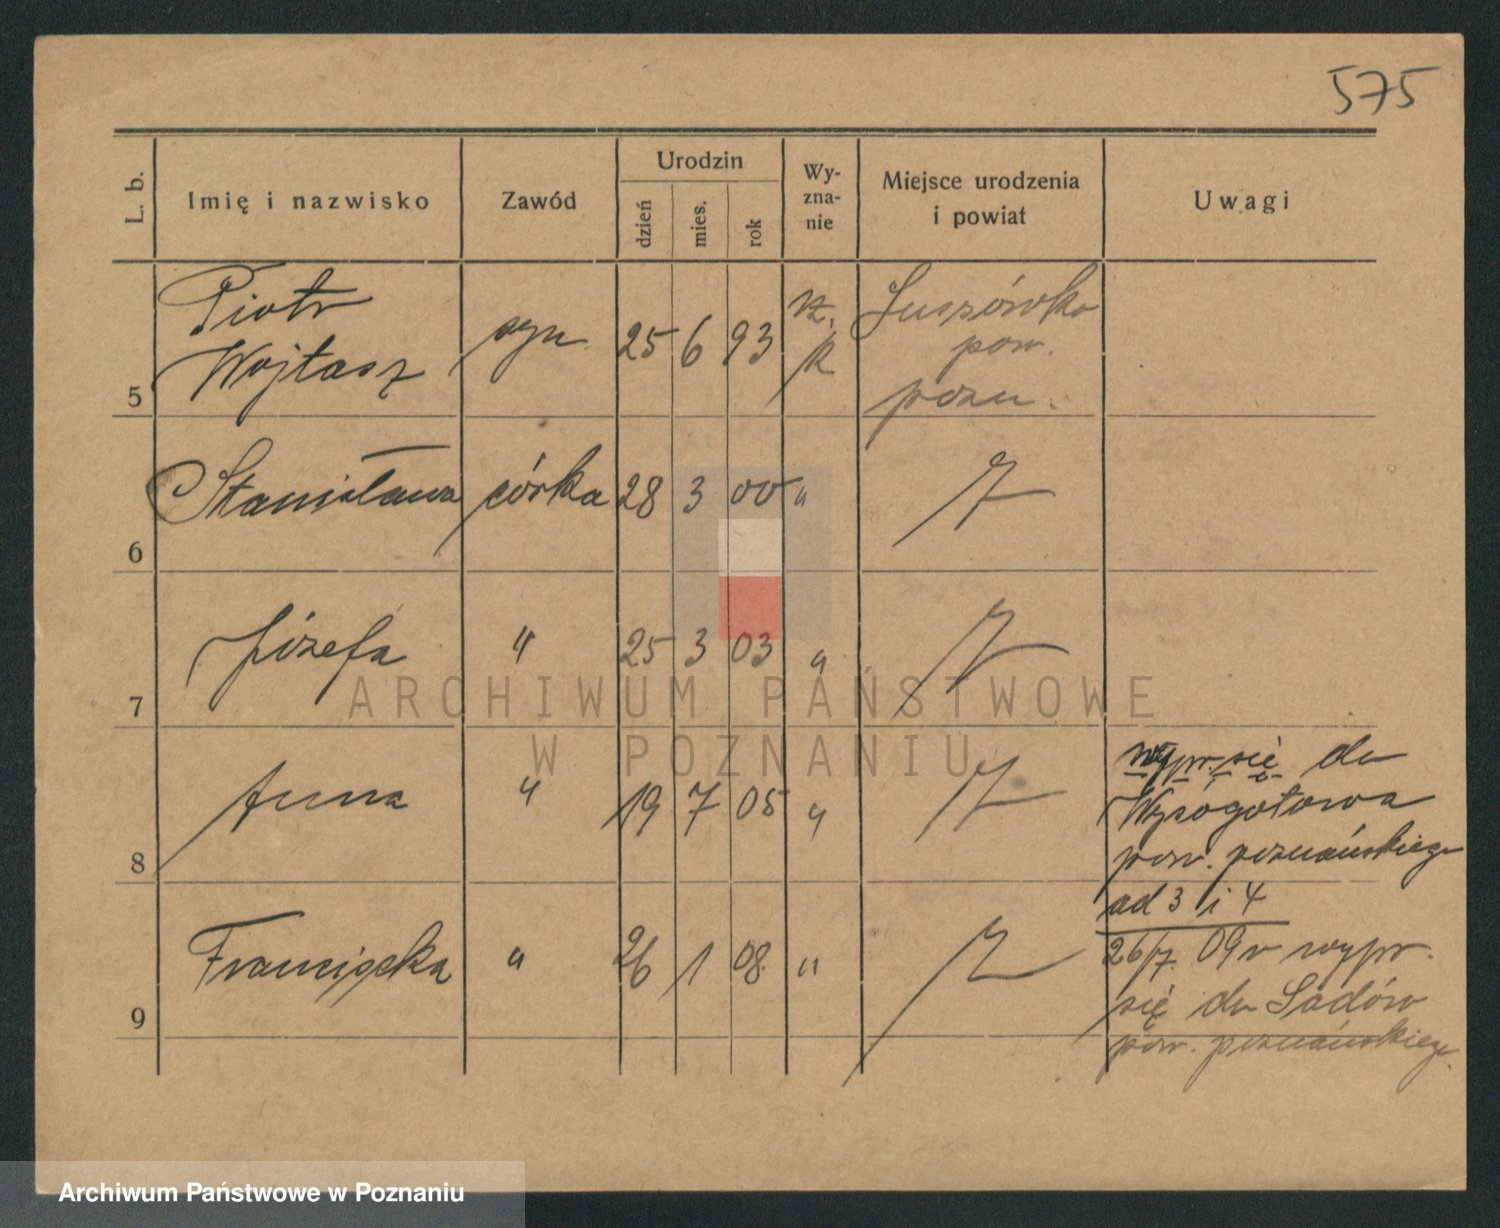 575
L. b.
Imię i nazwisko
Zawód
Urodzin
dzień
mies.
rok
Wy-
zna-
nie
Miejsce urodzenia
i powiat
Uwagi
Piotr
Wojtasz
5
syn
25 6 93
rz.
k
pow.
pozn.
6
Stanisława córka 28 3 00 "
7
Józefa " 25 3 03 "
8
Anna " 19 7 05 "
wypr. się do
Wysogotowa
pow. poznańskiego
9
Franciszka " 26 1 08. "
ad 3 i 4
26/7. 09 v wypr.
się do Sadów
pow. poznańskiego.
ARCHIWUM PAŃSTWOWE
W POZNANIU
Archiwum Państwowe w Poznaniu